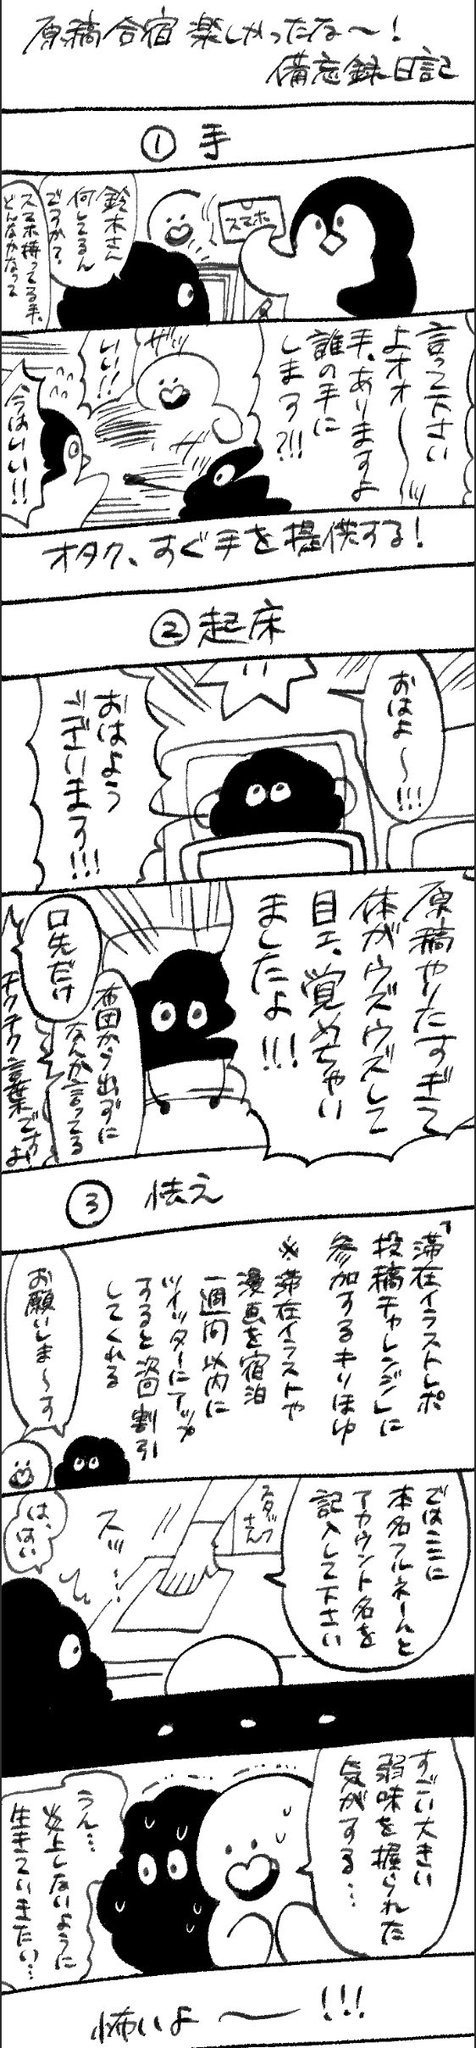 原稿合宿 楽しかったな〜!
備忘録日記
①手
スマホ
鈴木さん
何してるん
ですか?
スマホ持ってる手、
どんなかなって
言って下さい
よオオ〜〜ッ
手、ありますよ
誰の手に
します?!!
ザッ
いい!!
今はいい!!!
オタク、すぐ手を提供する!
②起床
おはよ〜〜!!!
おはよう
ございます!!!
原稿やりたすぎて
体がウズウズして
目エ、覚めちゃい
ましたよ!!!
布団から出ずに
なんか言ってる
口先だけ
チクチク言葉ですよ
③怯え
「滞在イラストレポ
投稿チャレンジ」に
参加するキリほゆ
※滞在イラストや
漫画を宿泊
一週間以内に
ツイッターにアップ
すると次回割引
してくれる
お願いしま〜す
ではここに
本名フルネームと
アカウント名を
記入して下さい
スタッフ
さん
スッ…
は、はい
すごい大きい
弱味を握られた
気がする…
うん…
炎上しないように
生きていきたい…
怖いよ〜!!!